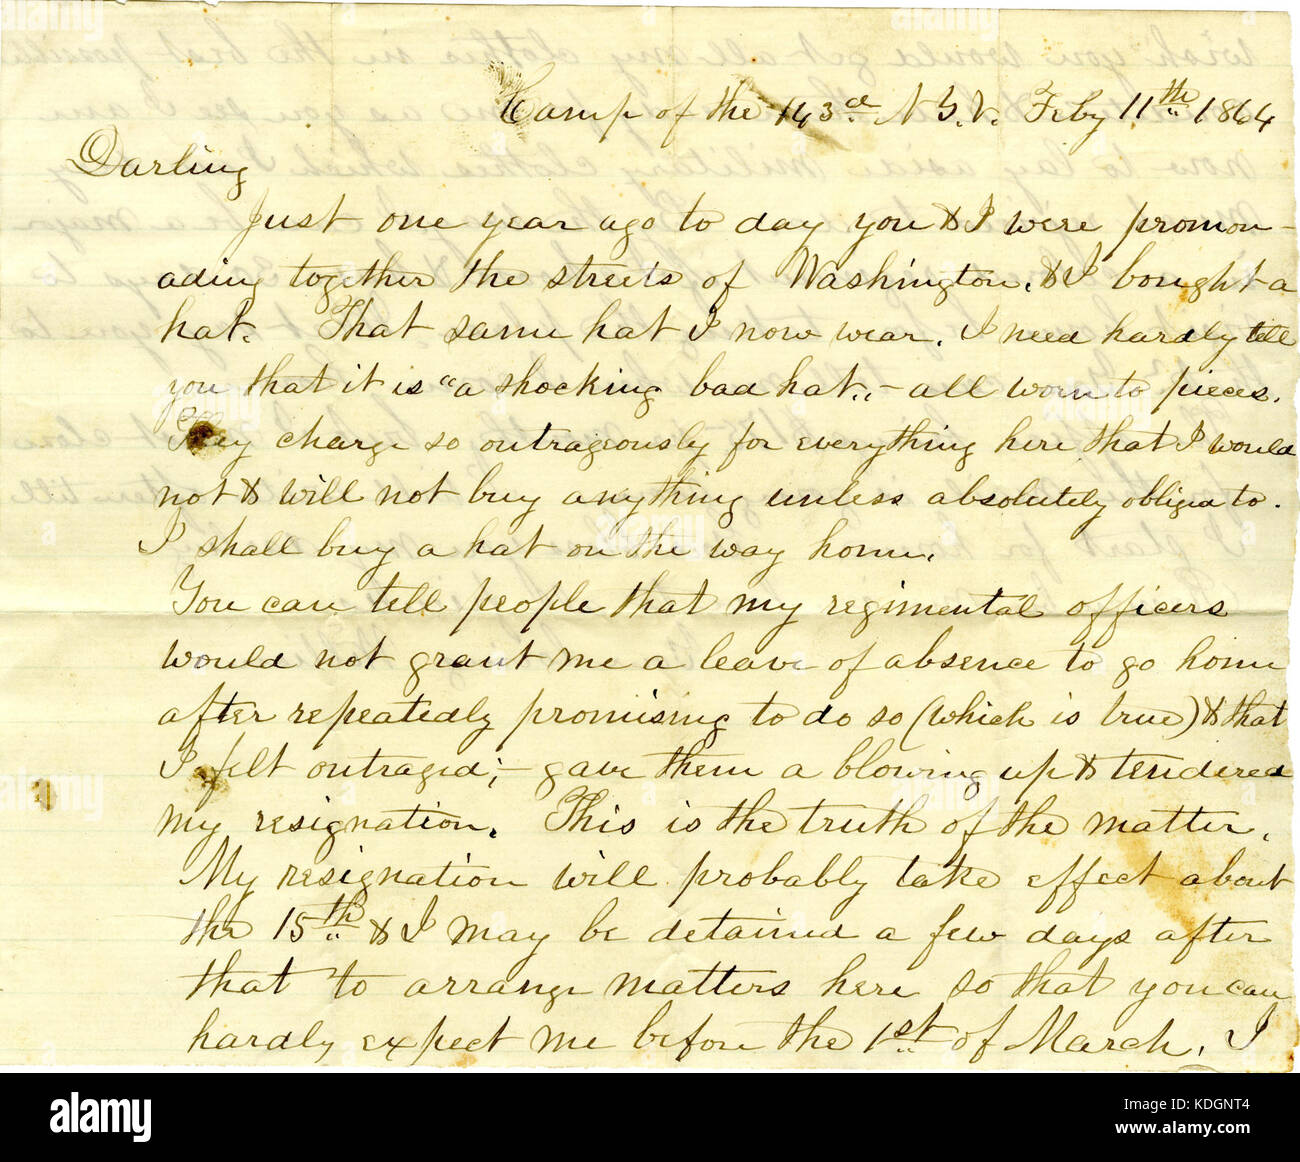 Camp of the 143d. N.Y.V. Feby 11th 1864
Darling
Just one year ago to day you & I were promon-
ading together the streets of Washington, & I bought a
hat. That same hat I now wear. I need hardly tell
you that it is "a shocking bad hat", - all worn to pieces.
They charge so outrageously for everything here that I would
not & will not buy anything unless absolutely obliged to.
I shall buy a hat on the way home.
You can tell people that my regimental officers
would not grant me a leave of absence to go home
after repeatedly promising to do so (which is true) & that
I felt outraged; - gave them a blowing up & tendered
my resignation. This is the truth of the matter.
My resignation will probably take effect about
the 15th & I may be detained a few days after
that to arrange matters here so that you can
hardly expect me before the 1st of March. I
alamy
Image ID: KDGNT4
www.alamy.com